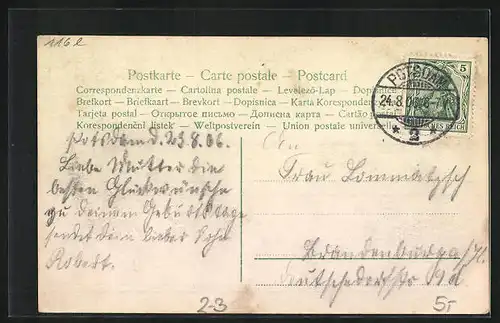 116 l
Postkarte – Carte postale – Postcard
Correspondenzkarte – Cartolina postale – Levelező-Lap – Dopisnica
Brefkort – Briefkaart – Brevkort – Dopisnica – Karta Korespondencyjna
Tarjeta postal – Открытое письмо – Дописна карта – Cartão postal
Korespondenční lístek – Weltpostverein – Union postale universelle
POTSDAM
24.8.06.8-
* 2
5
REICH
Potsdam d. 23.8.06.
Liebe Mutter die
besten Glückwünsche
zu deinem Geburtstage
sendet dein lieber Sohn
Robert.
An
Frau Lommatzsch
Brandenburg a/H.
2-3
5,-